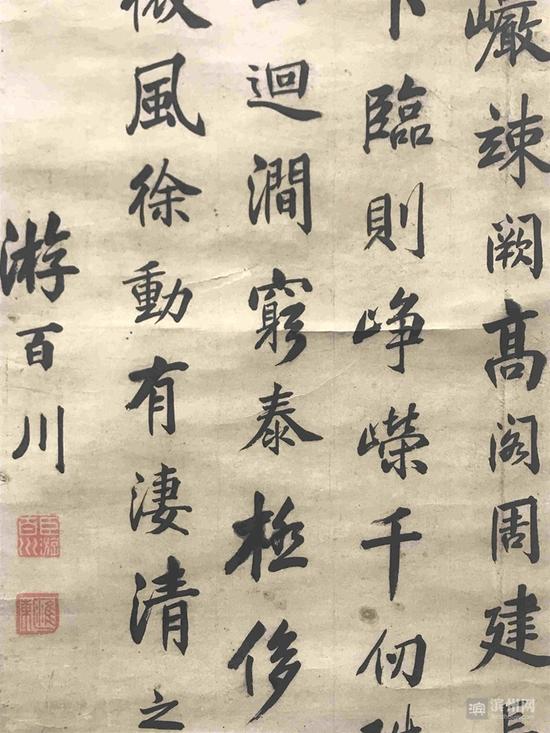 竦阙高阁周建
下臨則崢嶸千仞
迴澗窮泰極侈
微風徐動有淒清之
游百川
滨州网